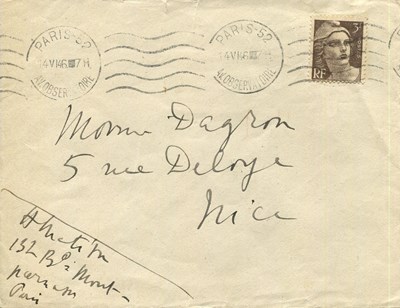 PARIS-52
14 VI 46 17H
R. OBSERVATOIRE
PARIS-52
14 VI 46 17H
R. OBSERVATOIRE
RF
Dagron
5 rue Deloye
Nice
H Matisse
132 Bd Mont-
parnasse
Paris